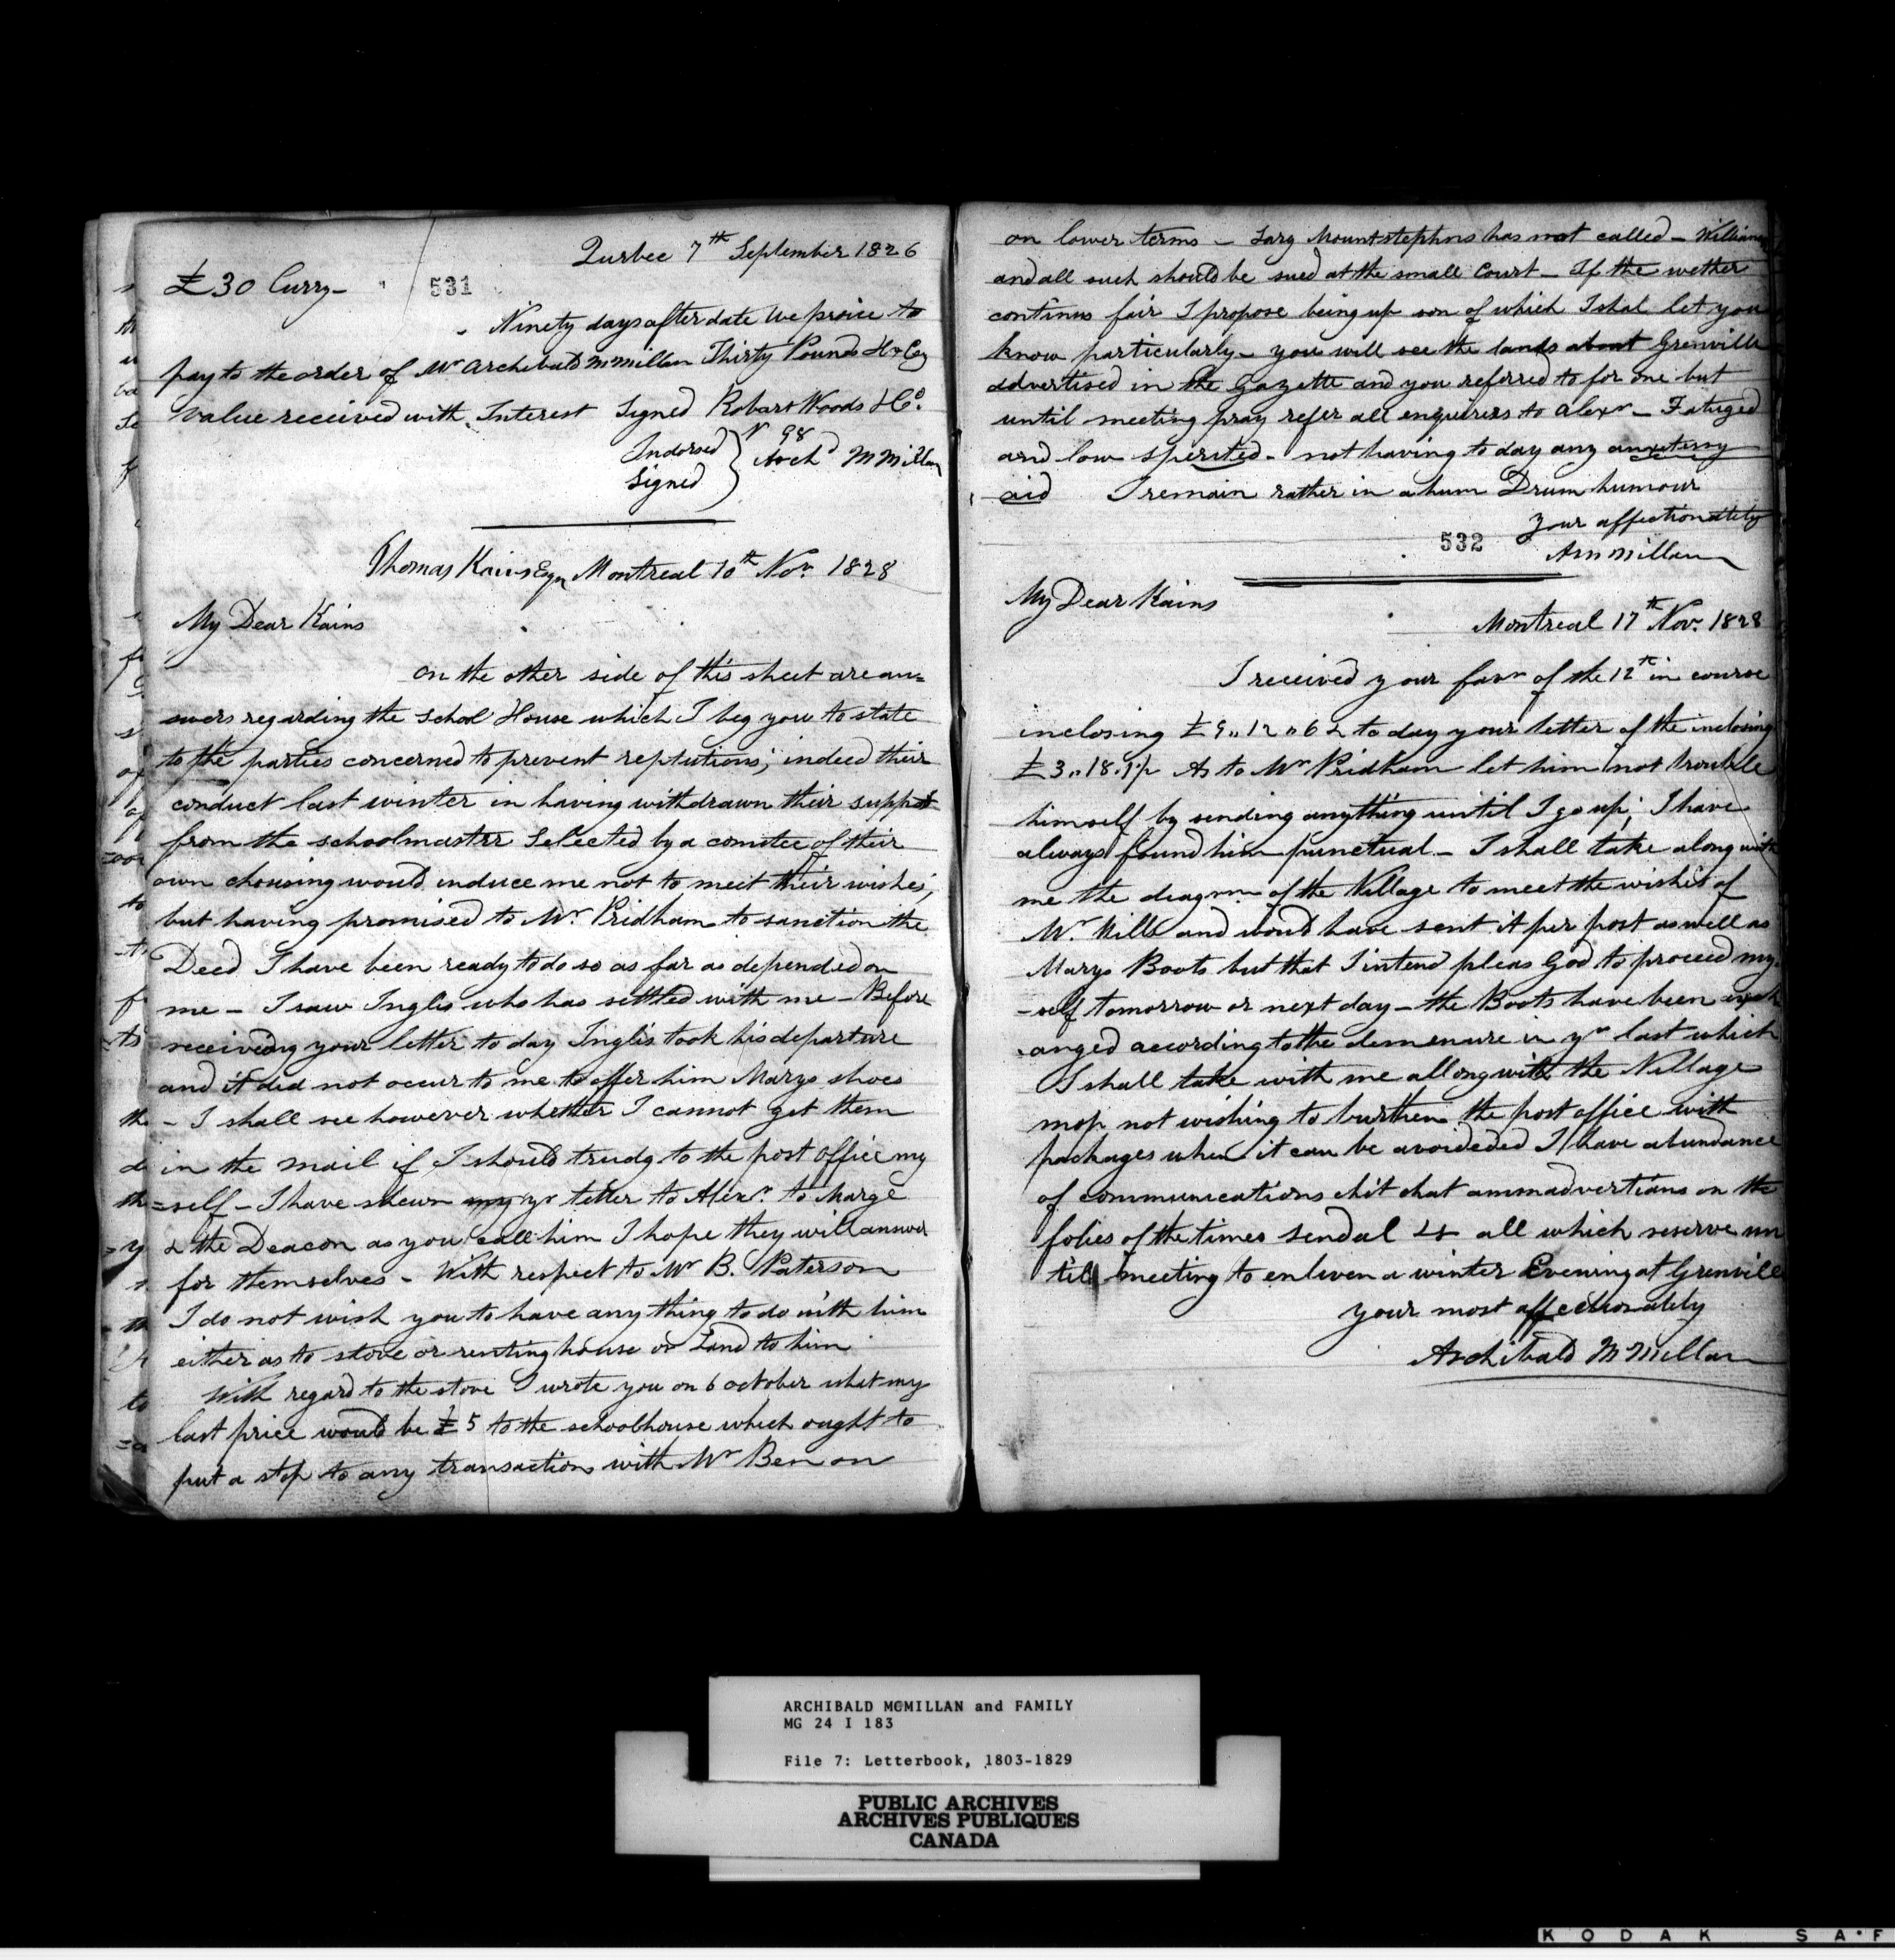 Qurbec 7th September 1826
£30 Curry -
531
Ninety days after date we proice to
pay to the order of Mr Archibald McMillan Thirty Pounds Hx Cy
value received with Interest Signed Robart Woods & Co.
Indorsed
Signed
Archd McMillan
Thomas Kains Esqr Montreal 10th Novr. 1828
My Dear Kains
on the other side of this sheet are an=
swers regarding the School House which I beg you to state
to the parties concerned to prevent reptutions; indeed their
conduct last winter in having withdrawn their support
from the schoolmastrr Selected by a comitee of their
own chousing would induce me not to meit their wishes;
but having promised to Mr. Pridham to sanction the
Deed I have been ready to do so as far as depended on
me - I saw Inglis who has settled with me - Before
receiveing your letter to day Inglis took his departure
and it did not occur to me to offer him Marys shoes
- I shall see however whether I cannot get them
in the mail if I should trudg to the post office my
=self - I have shewn my yr letter to Alexr. to Marge
& the Deacon as you call him I hope they will answer
for themselves - With respect to Mr B. Paterson
I do not wish you to have any thing to do with him
either as to stove or renting house or Land to him
With regard to the stove I wrote you on 6 october what my
last price would be £5 to the schoolhouse which ought to
put a stop to any transactions with Mr Ben on
on lower terms - Sarg Mountstephns has not called - William
and all such should be sued at the small Court - If the wether
continus fair I propose being up son of which I shal let you
know particularly - you will see the lands about Grenville
advertised in the Gazette and you referred to for one but
until meeting pray refer all enquirers to Alexr - Fatuged
and low sperited - not having to day any
aid I remain rather in a hum Drum humour
your affectionately
532
AMcMillan
My Dear Kains
Montreal 17th Nov. 1828
I received your favr of the 12th in course
inclosing £9,,12,,6 & to day your letter of the inclosing
£3,,18. As to Mr Pridham let him not trouble
himself by sending anything until I go up; I have
always found him punctual - I shall take along with
me the deagrm of the Village to meet the wishes of
Mr. Mills and would have sent it per post as well as
Marys Boots but that I intend pleas God to proceed my=
-self tomorrow or next day - the Boots have been exch
anged according to the demensure in yr last which
I shall take with me allong with the Village
map not wishing to burthen the post office with
packages when it can be avoideded I have abundance
of communications chit chat ammadvertians on the
folies of the times sendal & all which reserve un
till meeting to enliven a winter Evening at Grenville
your most affectionately
Archibald McMillan
ARCHIBALD MCMILLAN and FAMILY
MG 24 I 183
File 7: Letterbook, 1803-1829
PUBLIC ARCHIVES
ARCHIVES PUBLIQUES
CANADA
KODAK SAF